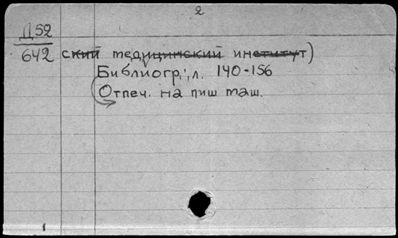 2
Д52
642 ский медицинский институт)
Библиогр.: л. 140-156
Отпеч. на пиш маш.
1